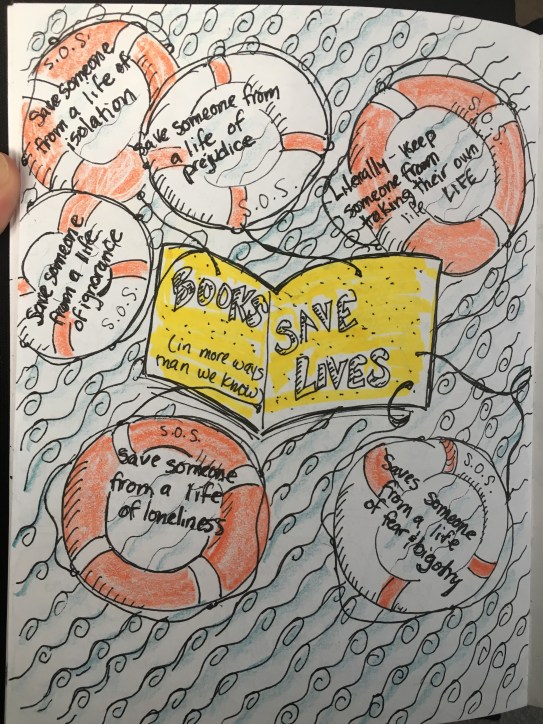 S.O.S.
Save someone
from a life of
isolation
Save someone from
a life of
prejudice
S.O.S.
S.O.S.
Literally - keep
someone from
taking their own
life LIFE
Save someone
from a life
of ignorance
S.O.S.
BOOKS
(in more ways
than we know)
SAVE
LIVES
S.O.S.
save someone
from a life
of loneliness
S.O.S.
Saves someone
from a life
of fear + bigotry